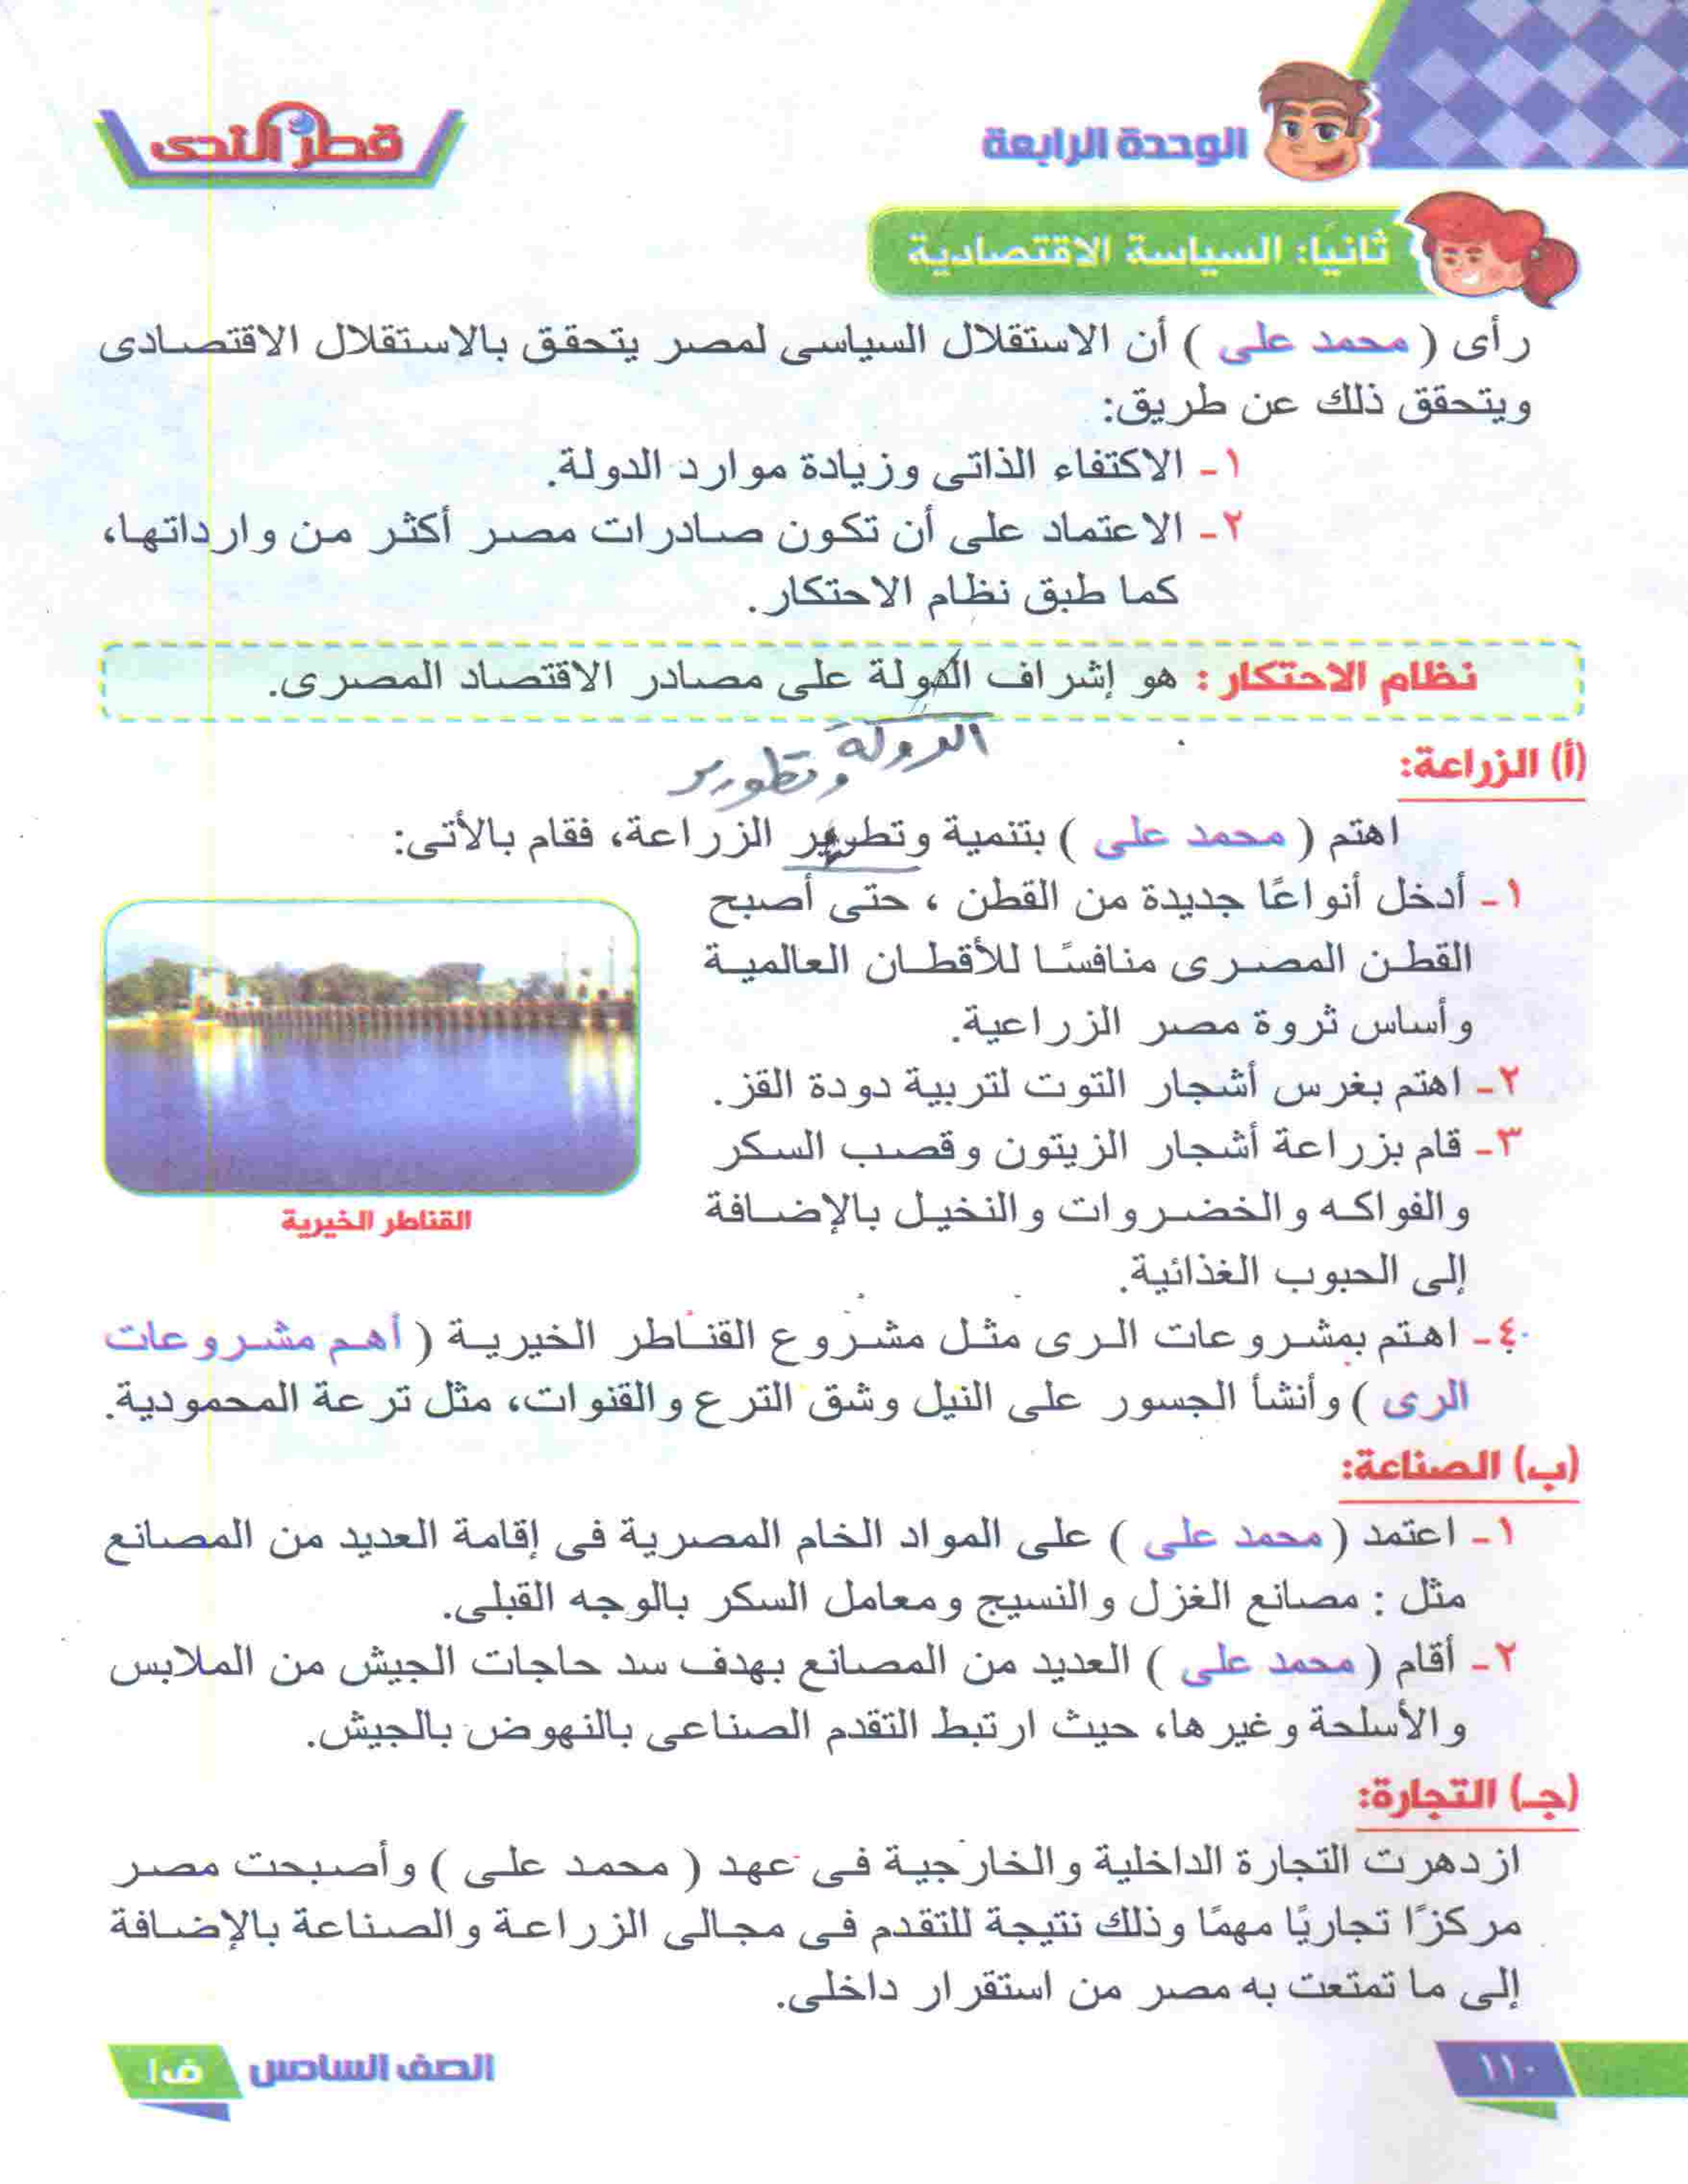 الوحدة الرابعة
قطر الندى
ثانيًا: السياسة الاقتصادية
رأى ( محمد على ) أن الاستقلال السياسى لمصر يتحقق بالاستقلال الاقتصادى
ويتحقق ذلك عن طريق:
١- الاكتفاء الذاتى وزيادة موارد الدولة.
٢- الاعتماد على أن تكون صادرات مصر أكثر من وارداتها،
كما طبق نظام الاحتكار.
نظام الاحتكار : هو إشراف الدولة على مصادر الاقتصاد المصرى.
الدولة
وتطوير
(أ) الزراعة:
اهتم ( محمد على ) بتنمية وتطوير الزراعة، فقام بالأتى:
١- أدخل أنواعًا جديدة من القطن ، حتى أصبح
القطن المصرى منافسًا للأقطان العالمية
وأساس ثروة مصر الزراعية.
٢- اهتم بغرس أشجار التوت لتربية دودة القز.
٣- قام بزراعة أشجار الزيتون وقصب السكر
والفواكه والخضروات والنخيل بالإضافة
إلى الحبوب الغذائية.
القناطر الخيرية
٤- اهتم بمشروعات الرى مثل مشروع القناطر الخيرية ( أهم مشروعات
الرى ) وأنشأ الجسور على النيل وشق الترع والقنوات، مثل ترعة المحمودية.
(ب) الصناعة:
١- اعتمد ( محمد على ) على المواد الخام المصرية فى إقامة العديد من المصانع
مثل : مصانع الغزل والنسيج ومعامل السكر بالوجه القبلى.
٢- أقام ( محمد على ) العديد من المصانع بهدف سد حاجات الجيش من الملابس
والأسلحة وغيرها، حيث ارتبط التقدم الصناعى بالنهوض بالجيش.
(جـ) التجارة:
ازدهرت التجارة الداخلية والخارجية فى عهد ( محمد على ) وأصبحت مصر
مركزًا تجاريًا مهمًا وذلك نتيجة للتقدم فى مجالى الزراعة والصناعة بالإضافة
إلى ما تمتعت به مصر من استقرار داخلى.
١١٠
الصف السادس
ف١